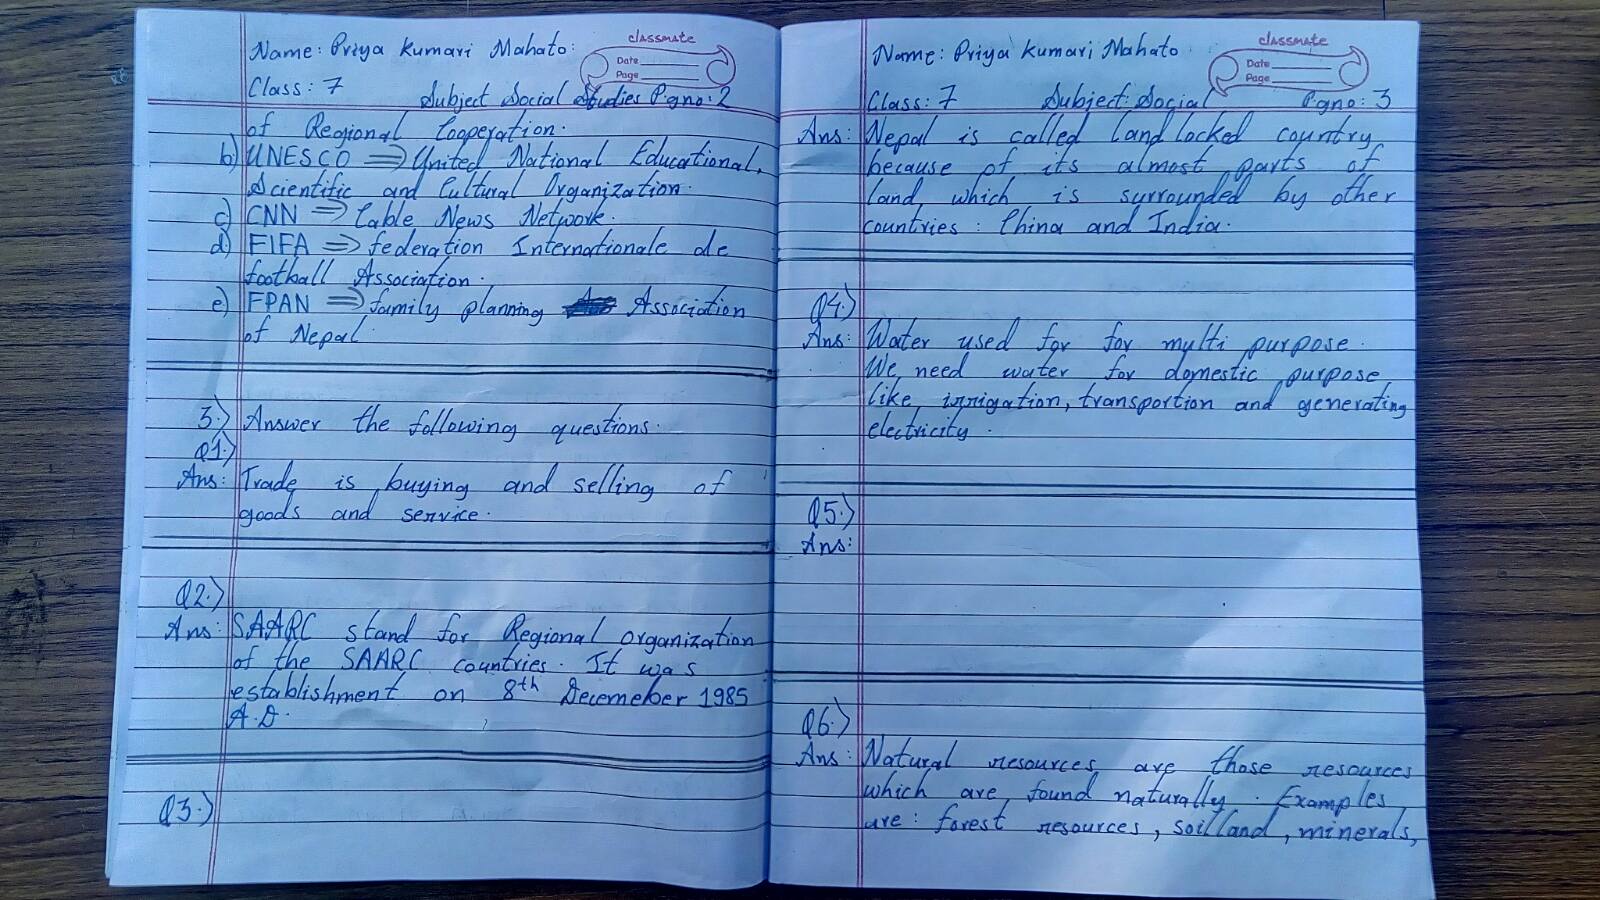 Name: Priya Kumari Mahato
classmate
Date
Page
Class: 7 Subject Social Studies Pgno: 2
of Regional Cooperation.
b) UNESCO => United National Educational,
Scientific and Cultural Organization.
c) CNN => Cable News Network.
d) FIFA => federation Internationale de
football Association.
e) FPAN => family planning Association
of Nepal.
3.) Answer the following questions.
Q1.)
Ans: Trade is buying and selling of
goods and service.
Q2.)
Ans: SAARC stand for Regional organization
of the SAARC countries. It was
establishment on 8th Decemeber 1985
A.D.
Q3.)
Name: Priya Kumari Mahato
classmate
Date
Page
Class: 7 Subject: Social Pgno: 3
Ans: Nepal is called landlocked country
because of its almost parts of
land, which is surrounded by other
countries: China and India.
Q4.)
Ans: Water used for for multi purpose.
We need water for domestic purpose
like irrigation, transportion and generating
electricity.
Q5.)
Ans:
Q6.)
Ans: Natural resources are those resources
which are found naturally. Examples
are: forest resources, soil land, minerals,